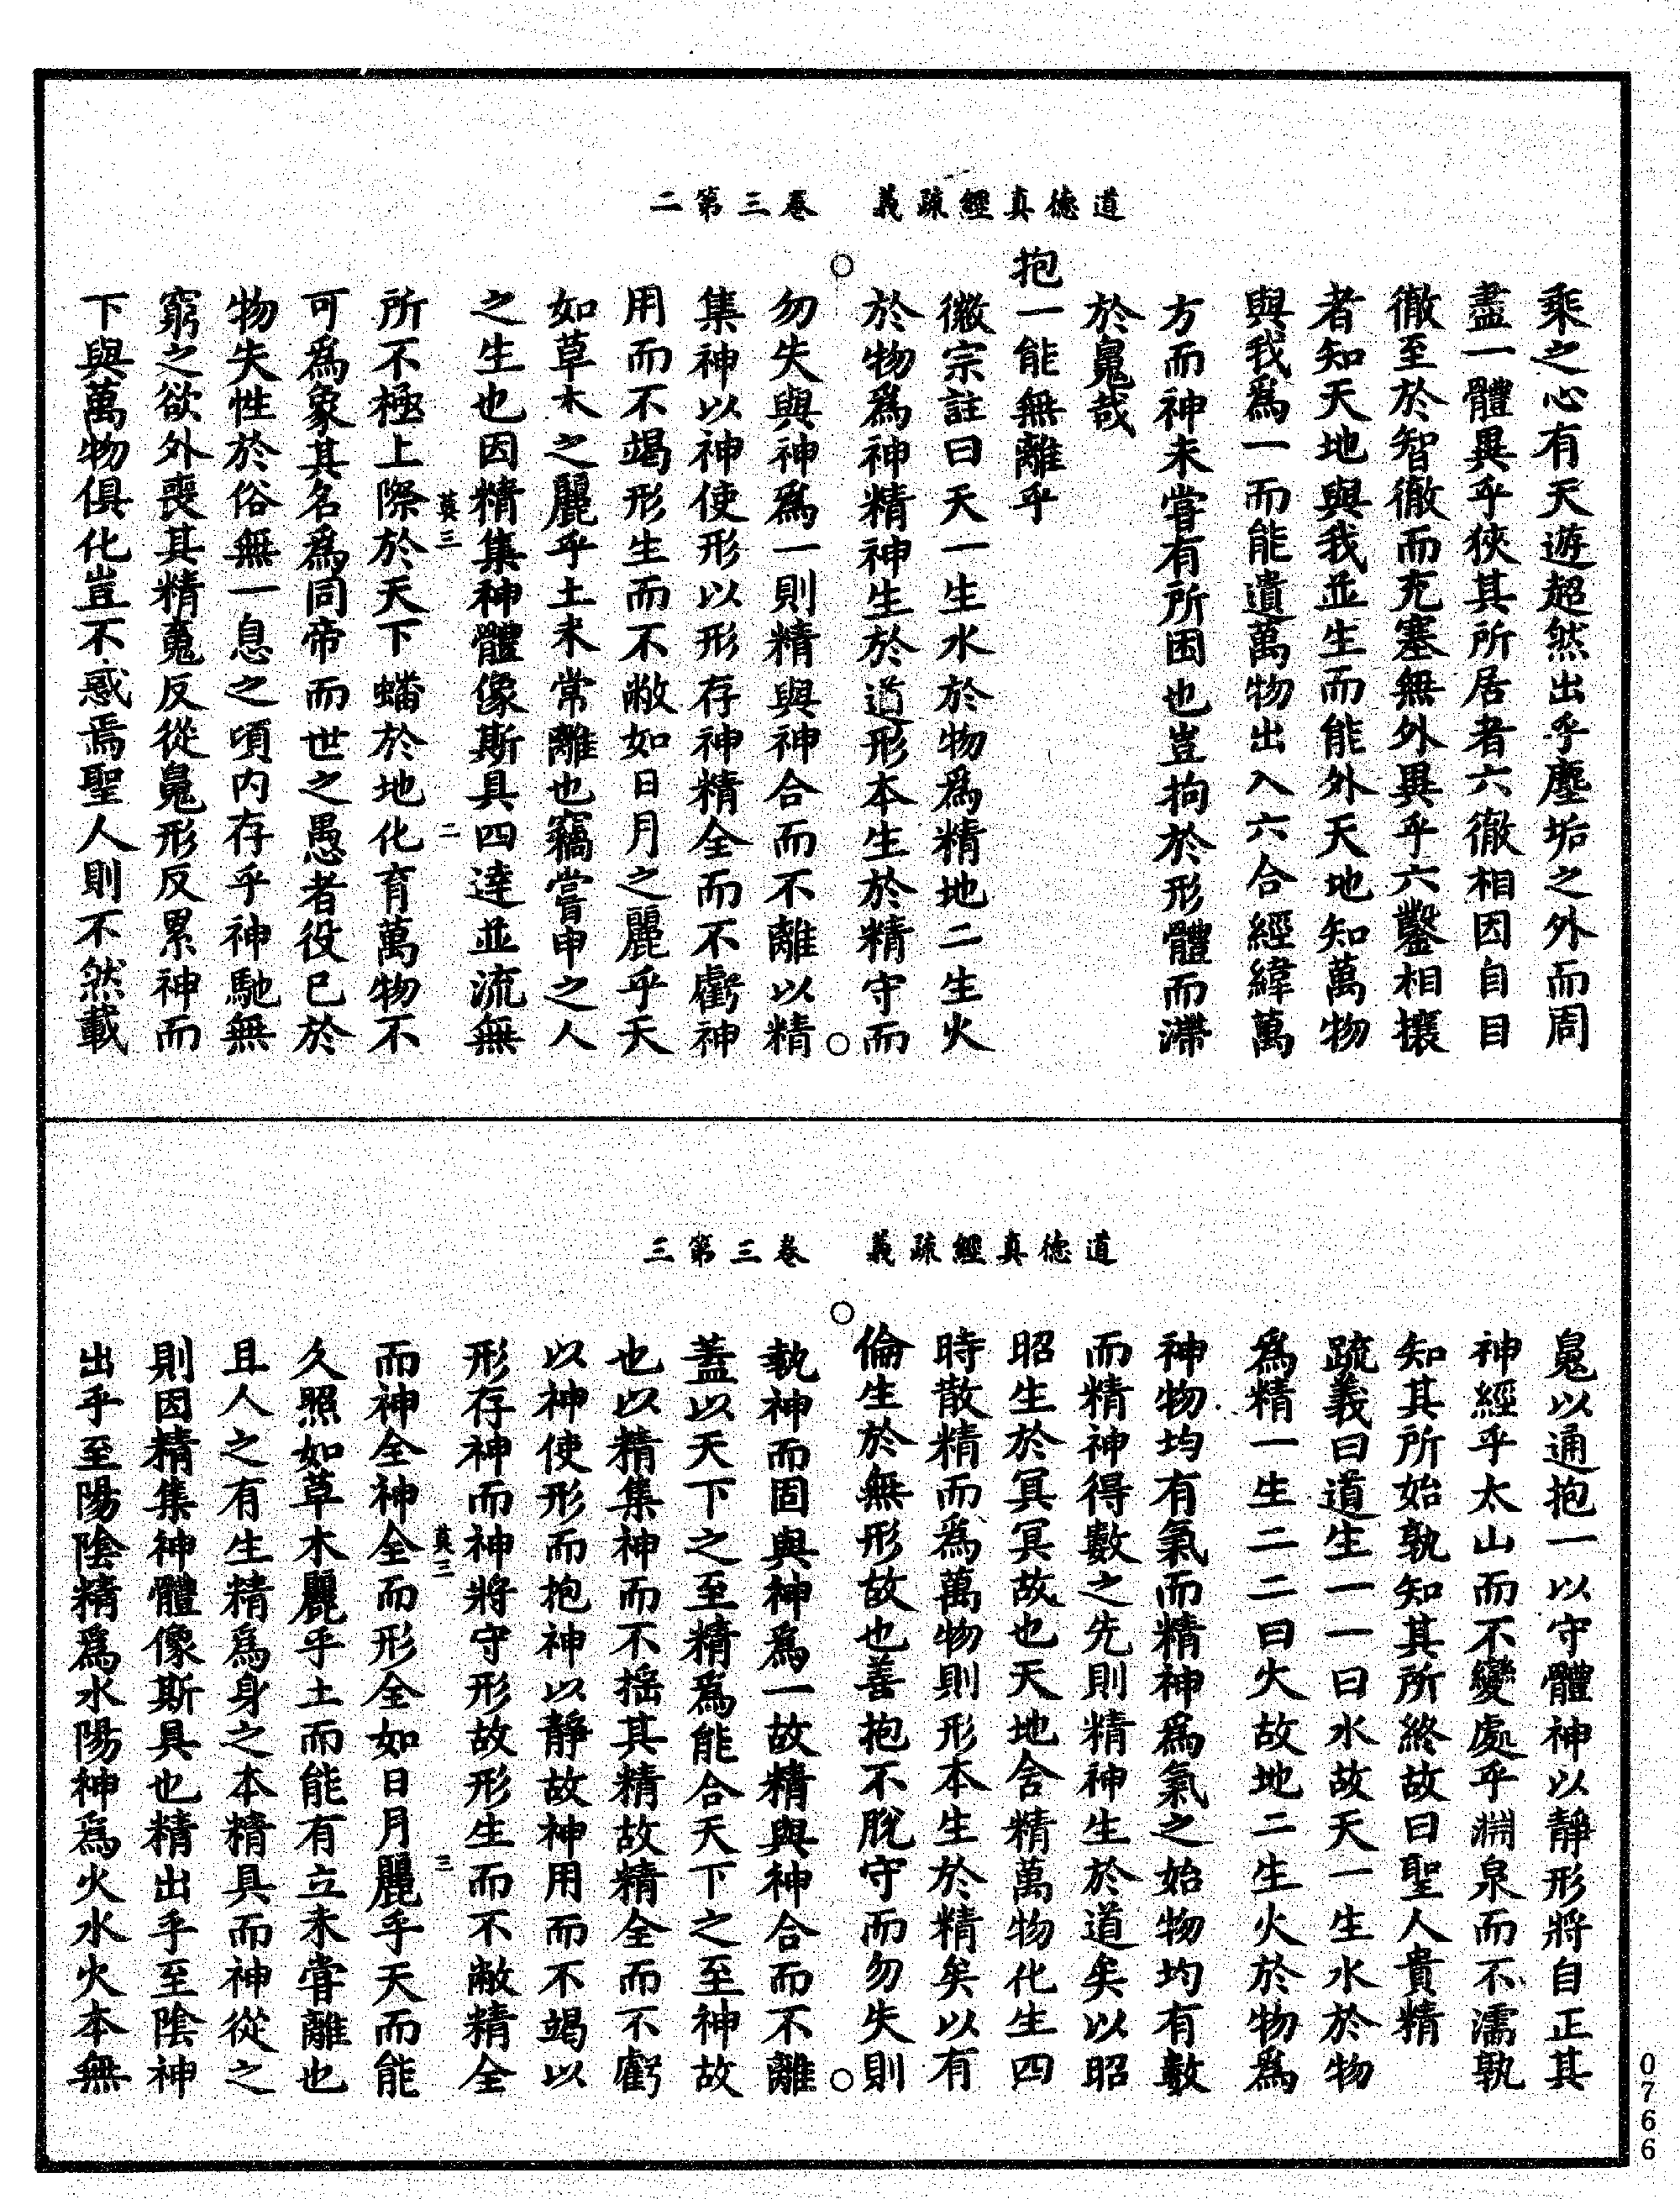 道德真經疏義　卷三第二
乘之心有天遊超然出乎塵垢之外而周
盡一體異乎狹其所居者六徹相因自目
徹至於智徹而充塞無外異乎六鑿相攘
者知天地與我並生而能外天地知萬物
與我爲一而能遺萬物出入六合經緯萬
方而神未嘗有所困也豈拘於形體而滯
於䰟哉
抱一能無離乎
徽宗註曰天一生水於物爲精地二生火
於物爲神精神生於道形本生於精守而
勿失與神爲一則精與神合而不離以精
集神以神使形以形存神精全而不虧神
用而不竭形生而不敝如日月之麗乎天
如草木之麗乎土未常離也竊嘗申之人
之生也因精集神體像斯具四達並流無
莫三　二
所不極上際於天下蟠於地化育萬物不
可爲象其名爲同帝而世之愚者役已於
物失性於俗無一息之頃内存乎神馳無
窮之欲外喪其精䰟反從䰟形反累神而
下與萬物俱化豈不惑焉聖人則不然載
道德真經疏義　卷三第三
䰟以通抱一以守體神以靜形將自正其
神經乎太山而不變處乎淵泉而不濡孰
知其所始孰知其所終故曰聖人貴精
疏義曰道生一一曰水故天一生水於物
爲精一生二二曰火故地二生火於物爲
神物均有氣而精神爲氣之始物均有數
而精神得數之先則精神生於道矣以昭
昭生於冥冥故也天地含精萬物化生四
時散精而爲萬物則形本生於精矣以有
倫生於無形故也善抱不脫守而勿失則
執神而固與神爲一故精與神合而不離
蓋以天下之至精爲能合天下之至神故
也以精集神而不搖其精故精全而不虧
以神使形而抱神以靜故神用而不竭以
形存神而神將守形故形生而不敝精全
莫三　三
而神全神全而形全如日月麗乎天而能
久照如草木麗乎土而能有立未嘗離也
且人之有生精爲身之本精具而神從之
則因精集神體像斯具也精出乎至陰神
出乎至陽陰精爲水陽神爲火水火本無
0766